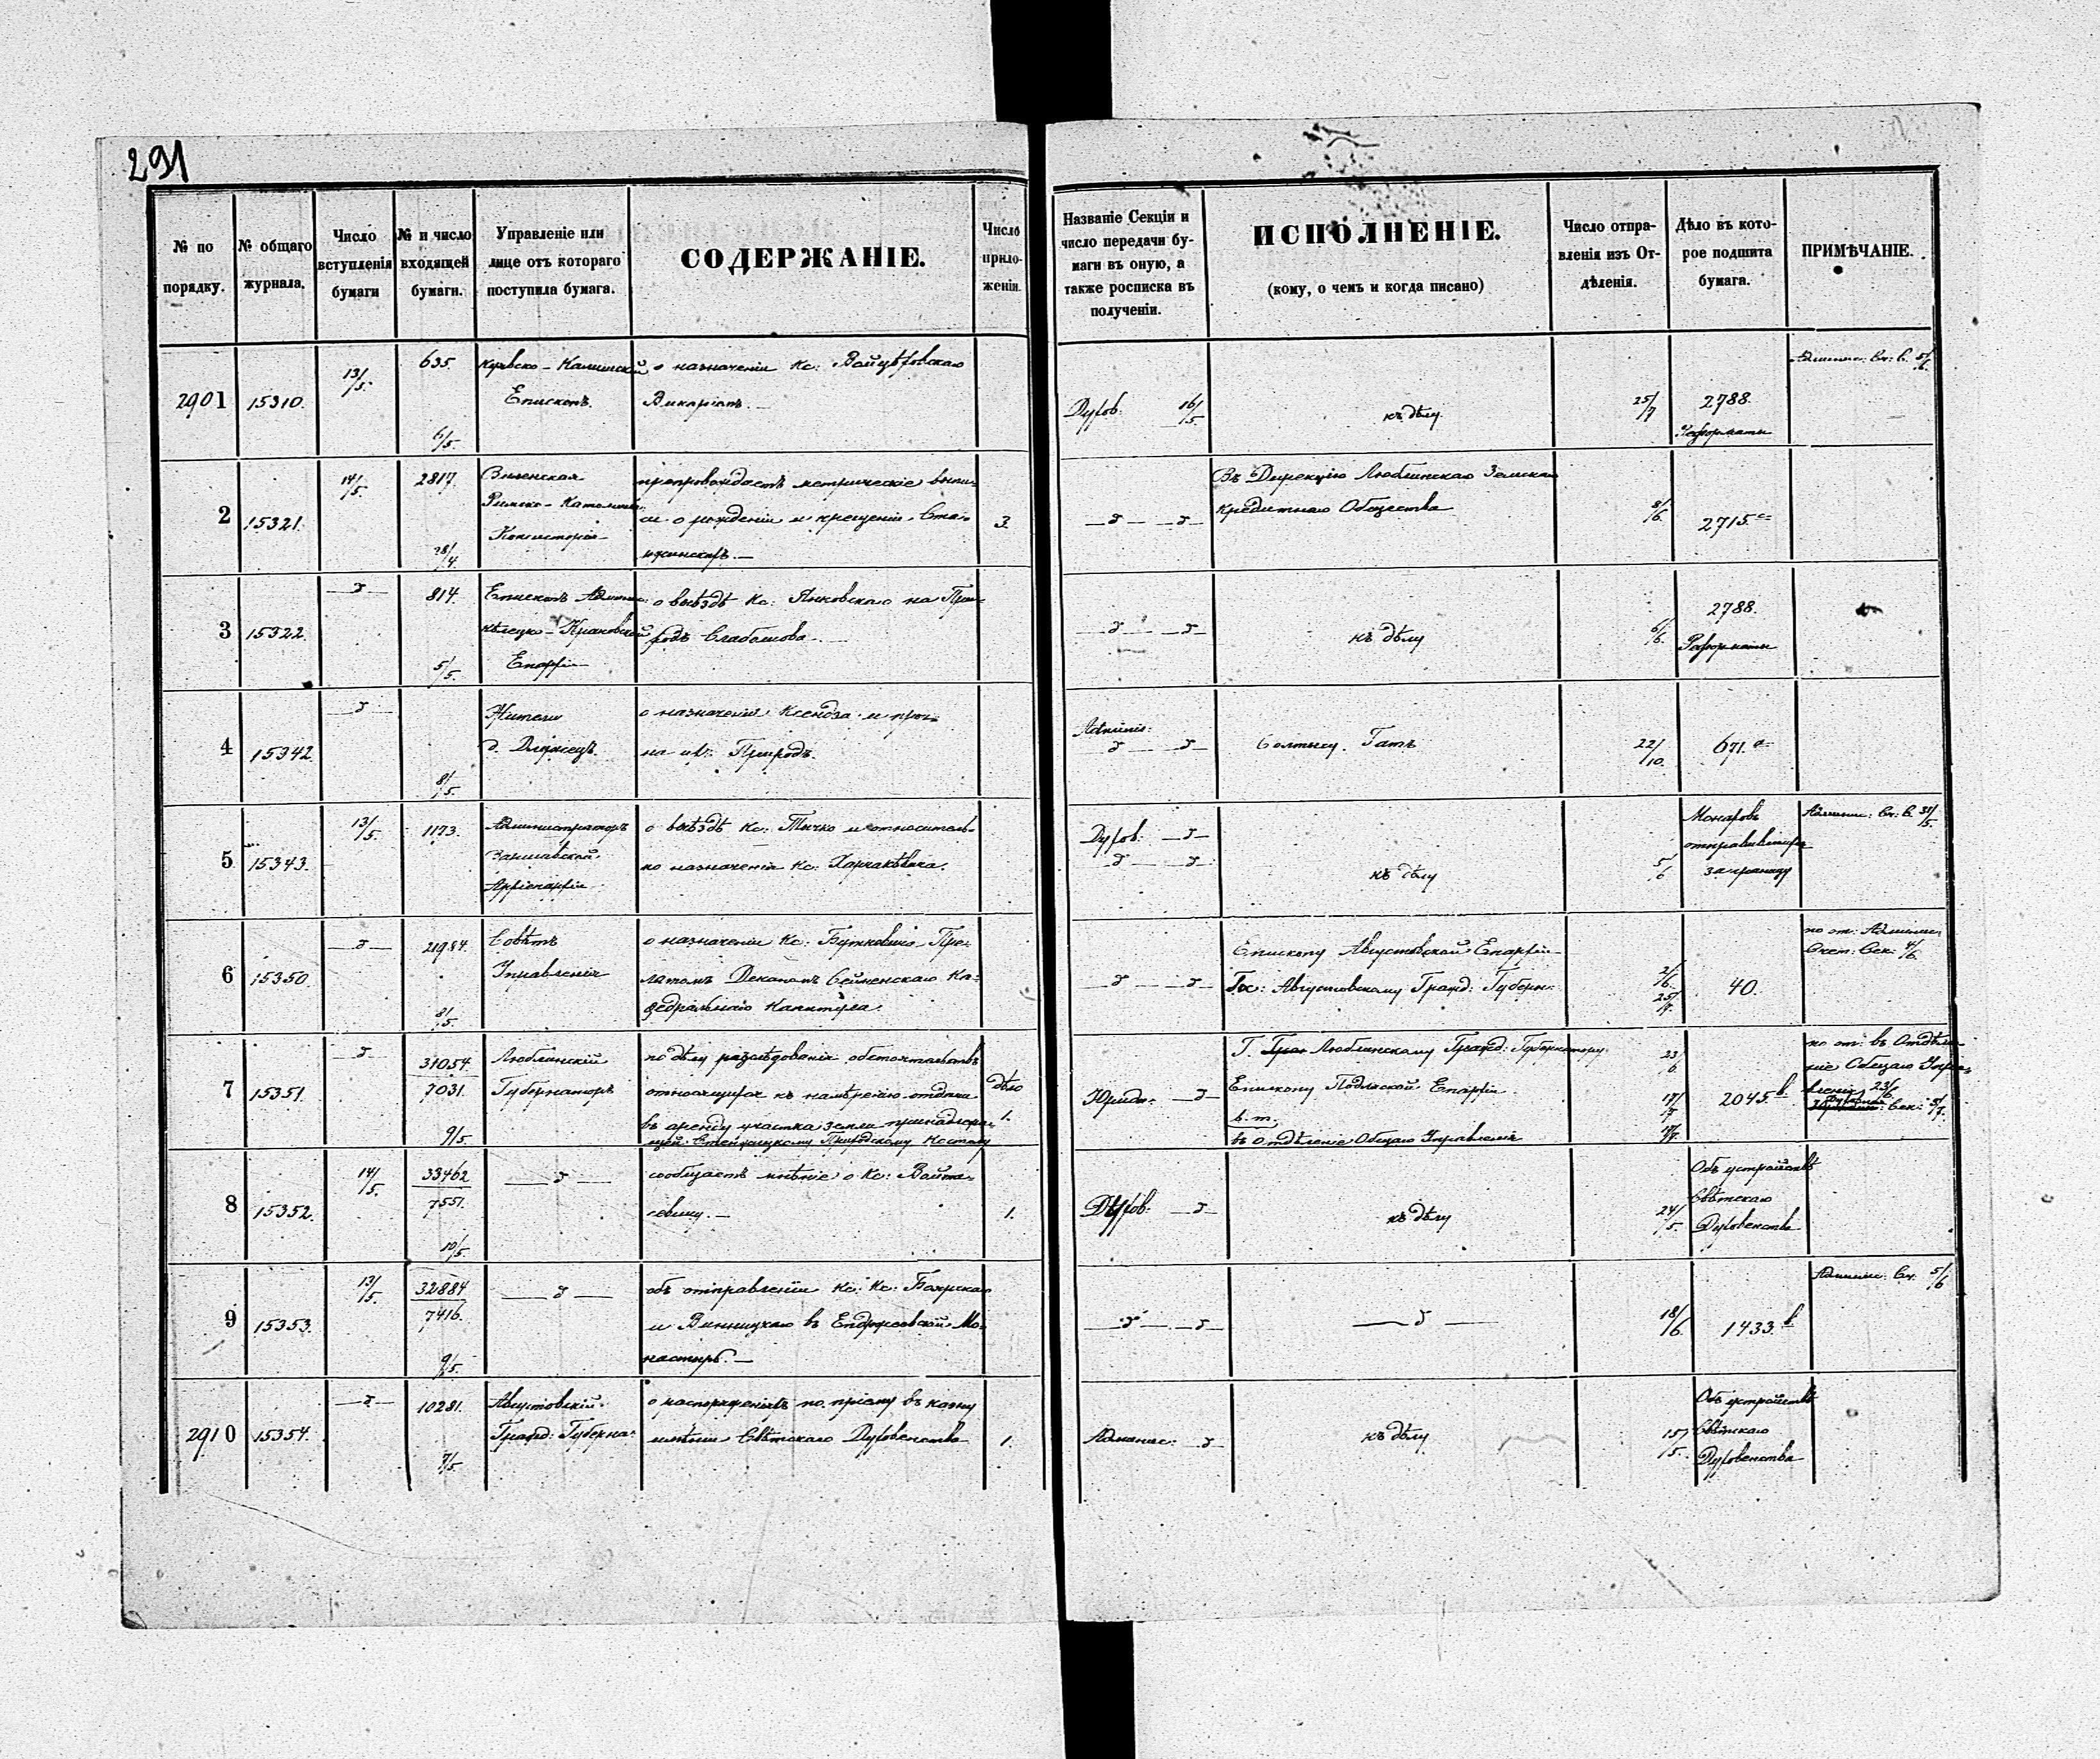 291
№ по порядку.
№ общаго журнала.
Число вступленія бумаги
№ и число входящей бумаги.
Управленіе или лице отъ котораго поступила бумага.
СОДЕРЖАНІЕ.
Число приложеній.
Названіе Секціи и число передачи бумаги въ оную, а также росписка въ полученіи.
ИСПОЛНЕНІЕ.
(кому, о чемъ и когда писано)
Число отправленія изъ Отдѣленія.
Дѣло въ которое подшита бумага.
ПРИМѢЧАНІЕ.
2901 15310. 13/5. 635. 6/5.
Калишскій
Епископъ.
о назначеніи Кс:
Викаріатъ.
Духов: 16/5.
къ дѣлу.
25/7
2788.
Реформаты
Админис: Сч: С. 5/6.
2 15321. 14/5. 2817. 28/4.
Виленская
Римско-Католич.
Консисторія
препровождаетъ метрическіе выпи-
си о рожденіи и крещеніи Ста-
3.
— д — — д —
Въ Дирекцію Люблинскаго Земскаго
Кредитнаго Общества
8/6.
2715.
3 15322. — д — 814. 5/5.
Епископъ Админи:
Кѣлецко-Краковской
Епархіи
о выѣздѣ Кс: Янковскаго на При-
ходъ
— д — — д —
къ дѣлу
6/6.
2788.
Реформаты
4 15342. — д — 8/5.
Жители
д.
о назначеніи Ксендза и проч=
на ихъ Приходъ.
Админис:
— д — — д —
Солтысу.
22/10.
671. а
5 15343. 13/5. 1173.
Администраторъ
Варшавской
Архіепархіи
о выѣздѣ Кс: Тычко и относитель-
но назначенія Кс:
Духов: — д —
— д — — д —
къ дѣлу
5/6
Монаховъ
отправившихся
заграницу
Админис: Сч: С. 31/5.
6 15350. — д — 21984. 8/5.
Совѣтъ
Управленія
о назначеніи Кс: Буткевича Пре-
латомъ Деканомъ Сейненскаго Ка-
ѳедральнаго Капитула.
— д — — д —
Епископу Августовской Епархіи
Гос: Августовскому Гражд: Губерн:
2/6.
25/7.
40.
по от: Админис:
Счет: Сек: 4/6.
7 15351. — д — 31054 7031. 9/5.
Люблинскій
Губернаторъ
по дѣлу разслѣдованія обстоятельствъ
относящихся къ намѣренію отдачи
въ аренду участка земли принадлежа-
щей Стенжицкому Приходскому Костелу
дѣло
1.
Юридич: — д —
Г. Люблинскому Гражд: Губернатору
Епископу Подляской Епархіи
в. т.
въ Отдѣленіе Общаго Управленія
23/6
17/7
2045. b
по от: въ Отдѣле-
ніе Общаго Управ-
ленія 23/6.
Сек: 5/7.
8 15352. 14/5. 33462 7551. 10/5.
— д —
сообщаетъ мнѣніе о Кс: Войта-
севичу. —
1.
Духов: — д —
къ дѣлу
24/5.
Объ устройствѣ
Свѣтскаго
Духовенства
9 15353. 13/5. 32884 7416. 9/5.
— д —
объ отправленіи Кс: Кс: Боярскаго
и Винницкаго въ Енджеевскій Мо-
настырь. —
— д — — д —
— д —
18/6.
1433. b
Админис: Сч: 5/6
2910 15354. — д — 10281. 7/5.
Августовскій
Гражд: Губерна:
о распоряженіяхъ по пріему въ казну
имѣнія Свѣтскаго Духовенства
1.
Админис: — д —
къ дѣлу
15/5.
Объ устройствѣ
Свѣтскаго
Духовенства